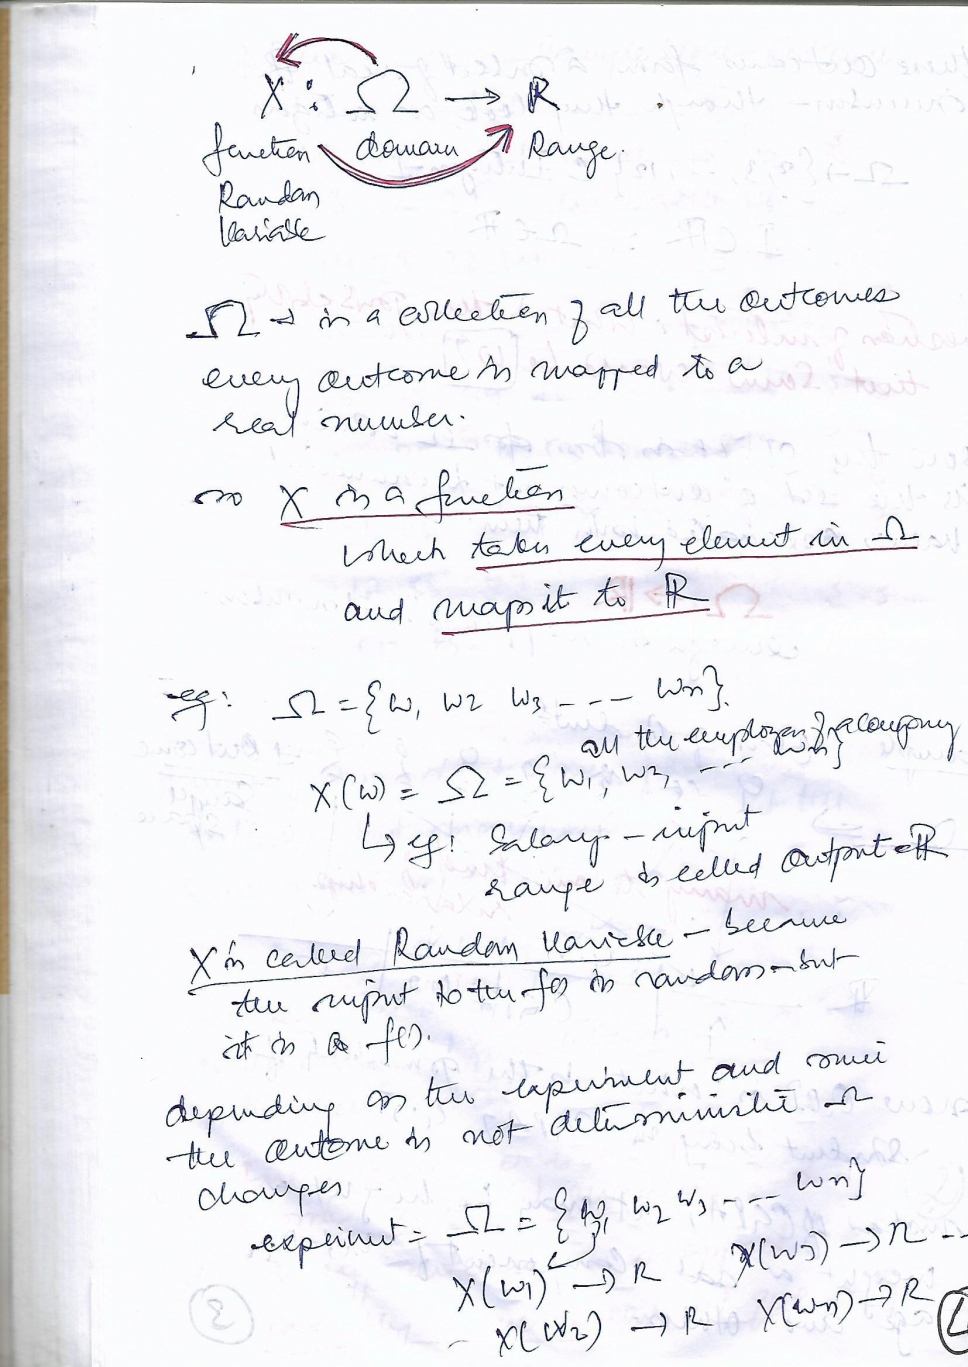 X : Ω → R
function domain Range.
Random
Variable
Ω → is a collection of all the outcomes
every outcome is mapped to a
real number.
so X is a function
which takes every element in Ω
and maps it to R
eg: Ω = {w1 w2 w3 --- wn}.
all the employees of a company
X(w) = Ω = {w1, w2, --- wn}
↳ eg: Salary - input
range is called output = R
X is called Random Variable - because
the input to the fn is random - but
it is a f().
depending on the experiment and since
the outcome is not deterministic Ω
changes
experiment = Ω = {w1 w2 w3 --- wn}
X(w1) → R X(w3) → R --
X(w2) → R X(wn) → R